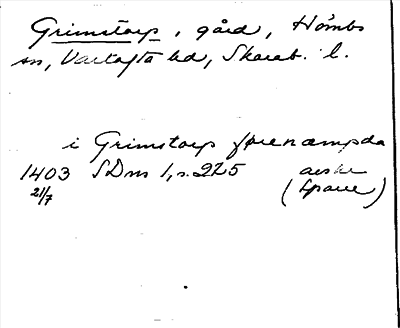 Grimstorp, gård, Hömbs
sn, Vartofta hd, Skarab. l.
i Grimstorp forenæmpda
1403 SDns 1, s. 225
21/7